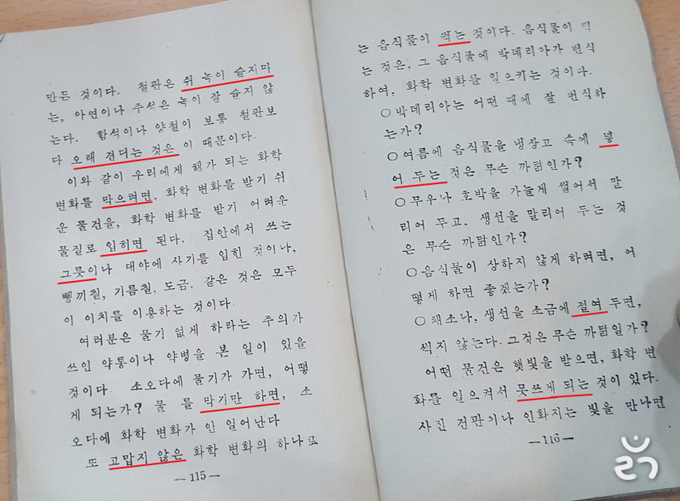 만든 것이다. 철판은 쉬 녹이 슬지마
는, 아연이나 주석은 녹이 잘 슬지 않
는다. 함석이나 양철이 보통 철판보
다 오래 견디는 것은 이 때문이다.
이와 같이 우리에게 해가 되는 화학
변화를 막으려면, 화학 변화를 받기 쉬
운 물건을, 화학 변화를 받기 어려운
물질로 입히면 된다. 집안에서 쓰는
그릇이나 대야에 사기를 입힌 것이나,
뼁끼칠, 기름칠, 도금. 같은 것은 모두
이 이치를 이용하는 것이다.
여러분은 물기 없게 하라는 주의가
쓰인 약통이나 약병을 본 일이 있을
것이다. 소오다에 물기가 가면, 어떻
게 되는가? 물 를 막기만 하면, 소
오다에 화학 변화가 안 일어난다
또 고맙지 않은 화학 변화의 하나로
— 115 —
는 음식물이 썩는 것이다. 음식물이 썩
는 것은, 그 음식물에 박데리아가 번식
하여, 화학 변화를 일으키는 것이다.
○박데리아는 어떤 때에 잘 번식하
는가?
○여름에 음식물을 냉장고 속에 넣
어 두는 것은 무슨 까닭인가?
○무우나 호박을 가늘게 썰어서 말
리어 두고, 생선을 말리어 두는 것
은 무슨 까닭인가?
○음식물이 상하지 않게 하려면, 어
떻게 하면 좋겠는가?
○채소나, 생선을 소금에 절여 두면,
썩지 않는다. 그것은 무슨 까닭일가?
어떤 물건은 햇빛을 받으면, 화학 변
화를 일으켜서 못쓰게 되는 것이 있다.
사진 건판이나 인화지는 빛을 만나면
— 116 —